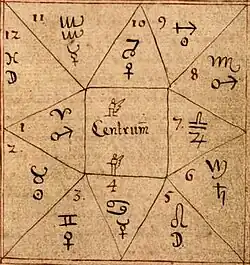 11 ♒ ☿
10 ♑ ♀
9 ♐ ☉
12 ♓ ☽
8 ♏ ♂
1 ♈ ♂
Centrum
7 ♎ ♃
2 ♉ ☉
3 ♊ ♀
4 ♋ ☿
5 ♌ ☽
6 ♍ ♄